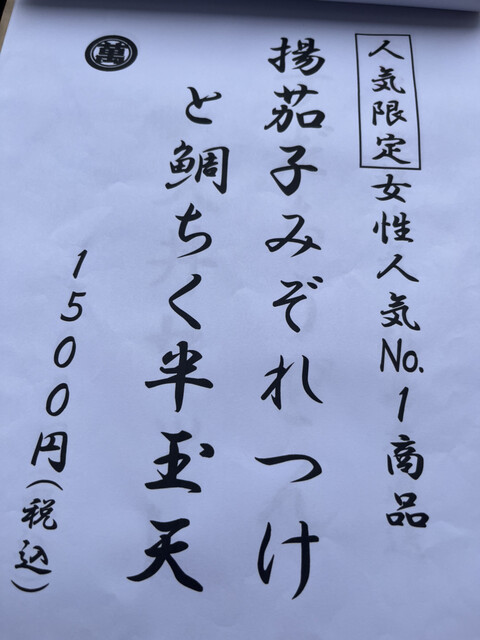 人気限定 女性人気No.1商品
揚茄子みぞれつけ
と鯛ちく半玉天
1500円(税込)
萬